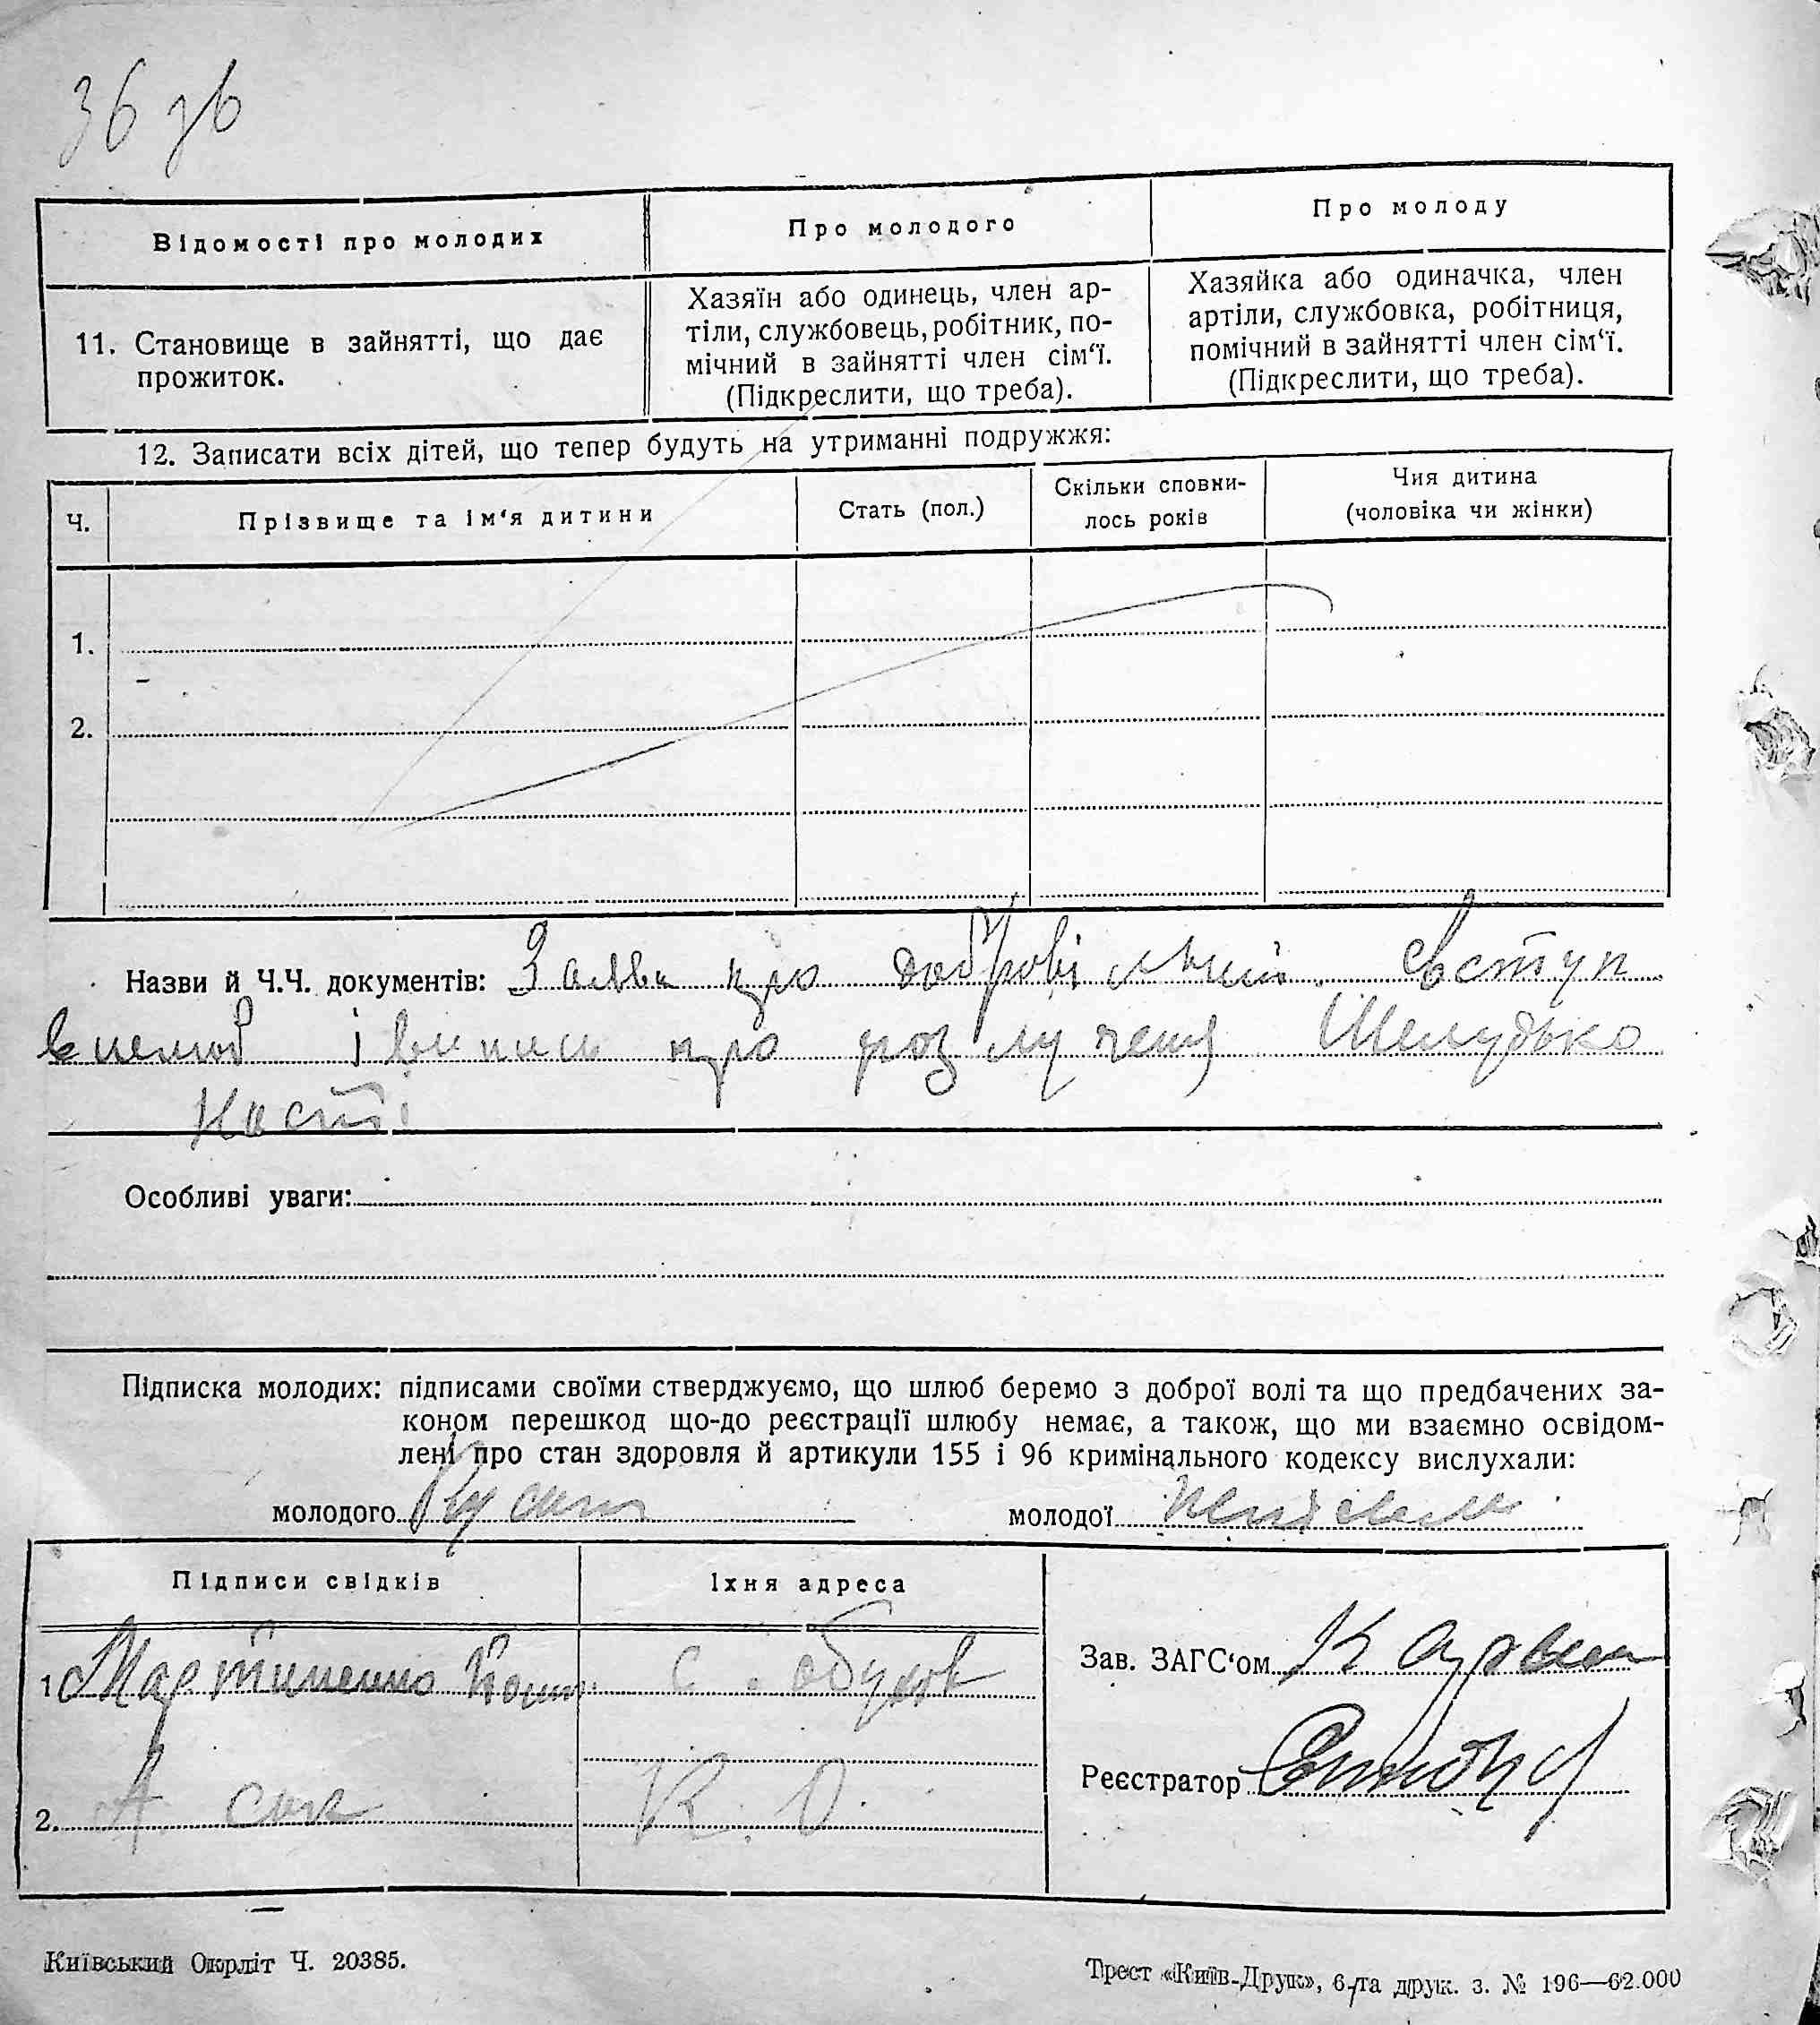 36 зв
Відомості про молодих
Про молодого
Про молоду
11. Становище в зайнятті, що дає
прожиток.
Хазяїн або одинець, член ар-
тіли, службовець, робітник, по-
мічний в зайнятті член сім‘ї.
(Підкреслити, що треба).
Хазяйка або одиначка, член
артіли, службовка, робітниця,
помічний в зайнятті член сім‘ї.
(Підкреслити, що треба).
12. Записати всіх дітей, що тепер будуть на утриманні подружжя:
Ч.
Прізвище та ім‘я дитини
Стать (пол.)
Скільки сповни-
лось років
Чия дитина
(чоловіка чи жінки)
1.
2.
Назви й Ч.Ч. документів: Заява про добровільний вступ
і випись про розлученя Шелудько
Насті
Особливі уваги:
Підписка молодих: підписами своїми стверджуємо, що шлюб беремо з доброї волі та що предбачених за-
коном перешкод що-до реєстрації шлюбу немає, а також, що ми взаємно освідом-
лені про стан здоровля й артикули 155 і 96 кримінального кодексу вислухали:
молодого
молодої
Підписи свідків
Їхня адреса
1. Мартиненко
с. Обухів
2. А
К. О.
Зав. ЗАГС‘ом
Реєстратор
Київський Окрліт Ч. 20385.
Трест «Київ-Друк», 6-та друк. з. № 196—62.000